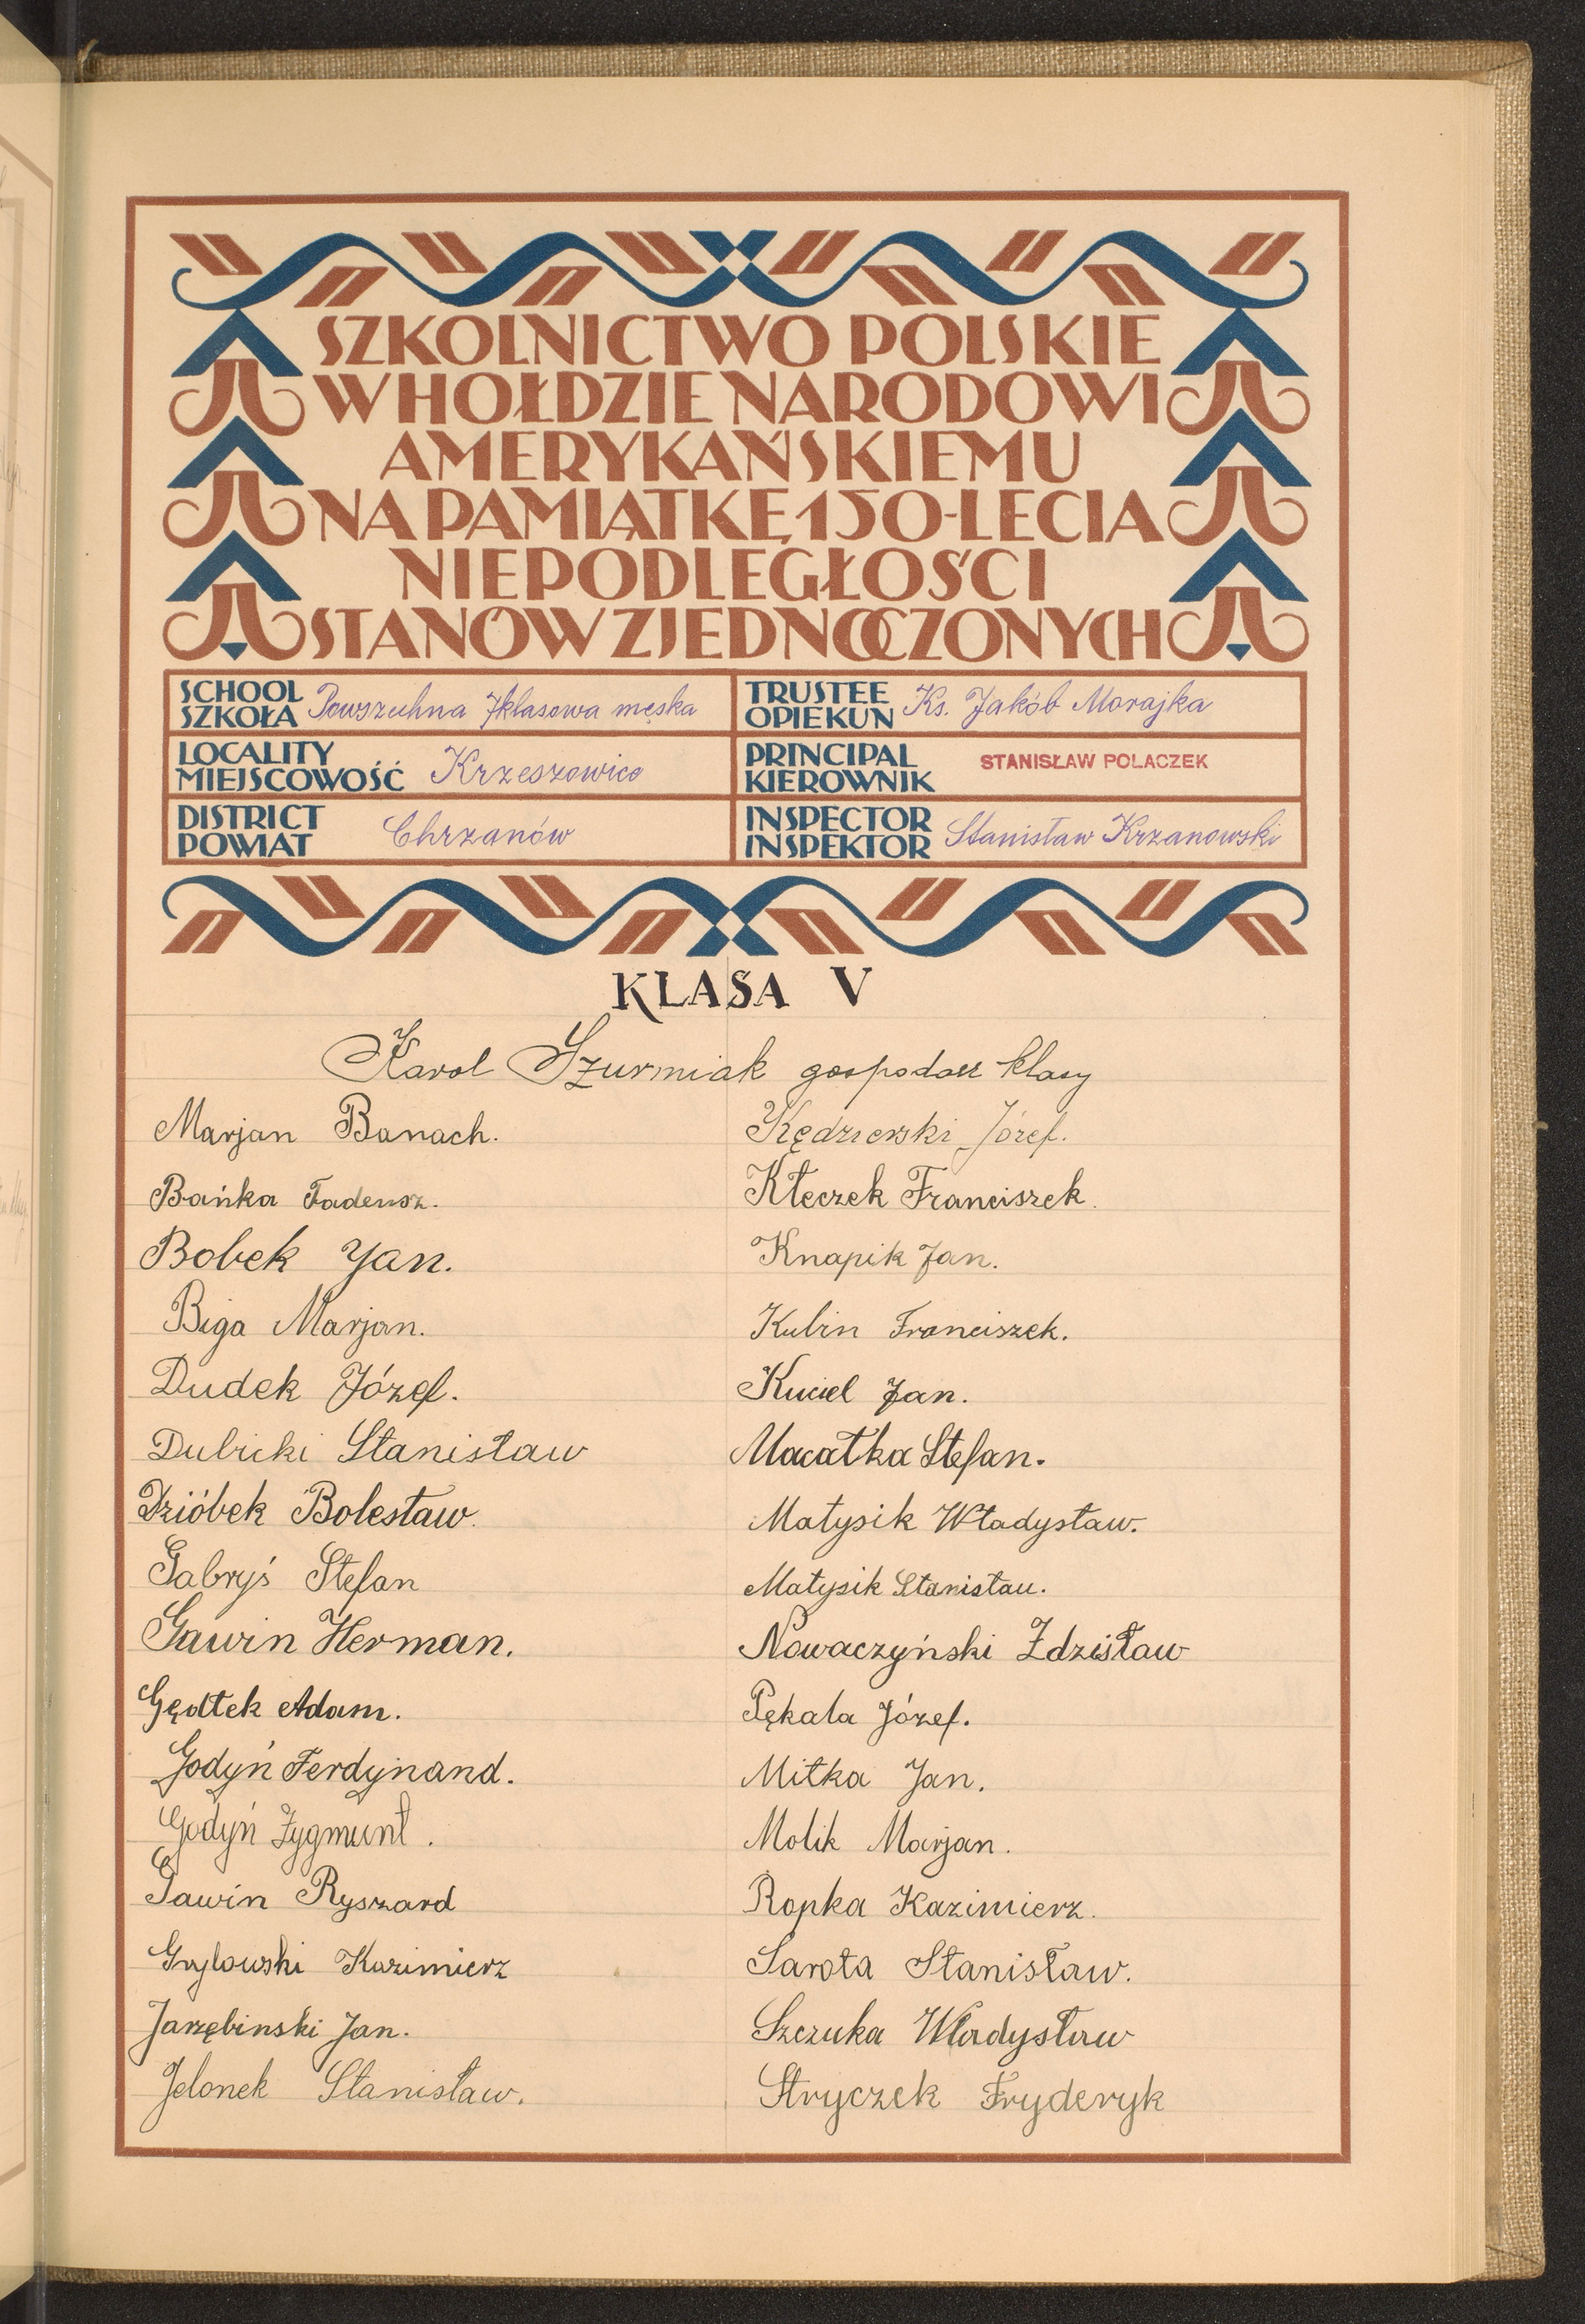 SZKOLNICTWO POLSKIE
W HOŁDZIE NARODOWI
AMERYKAŃSKIEMU
NA PAMIĄTKĘ 150-LECIA
NIEPODLEGŁOŚCI
STANÓW ZJEDNOCZONYCH
SCHOOL
SZKOŁA Powszechna 7klasowa męska
TRUSTEE
OPIEKUN Ks. Jakób Morajka
LOCALITY
MIEJSCOWOŚĆ Krzeszowice
PRINCIPAL
KIEROWNIK STANISŁAW POLACZEK
DISTRICT
POWIAT Chrzanów
INSPECTOR
INSPEKTOR Stanisław Krzanowski
KLASA V
Karol Szurmiak gospodarz klasy
Marjan Banach.
Bańka Tadeusz.
Bobek Jan.
Biga Marjan.
Dudek Józef.
Dubicki Stanisław
Dzióbek Bolesław.
Gabryś Stefan
Gawin Herman.
Gędłek Adam.
Godyń Ferdynand.
Godyń Zygmunt.
Gawin Ryszard
Grylowski Kazimierz
Jarzębinski Jan.
Jelonek Stanisław.
Kędzierski Józef.
Kłeczek Franciszek.
Knapik Jan.
Kubin Franciszek.
Kuciel Jan.
Macałka Stefan.
Matysik Władysław.
Matysik Stanisłau.
Nowaczyński Zdzisław
Pękala Józef.
Mitka Jan.
Molik Marjan.
Ropka Kazimierz.
Sarota Stanisław.
Szczuka Władysław
Stryczek Fryderyk